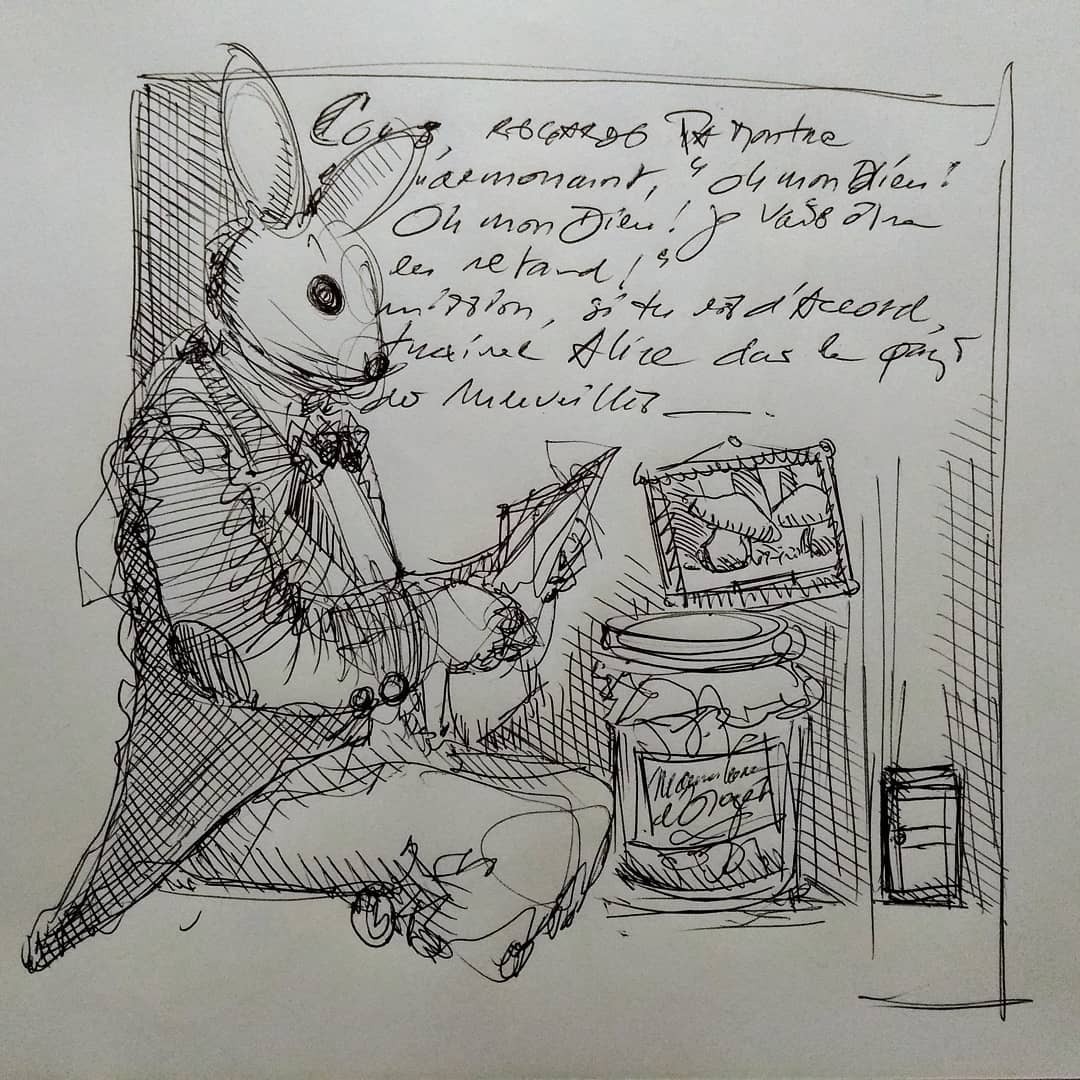 Cours, regarde Ta montre
marmonant, "oh mon Dieu!
Oh mon Dieu! je vais être
en retard!"
mission, si tu est d'Accord,
trainer Alice dans le pays
des Merveilles
d'Oranges